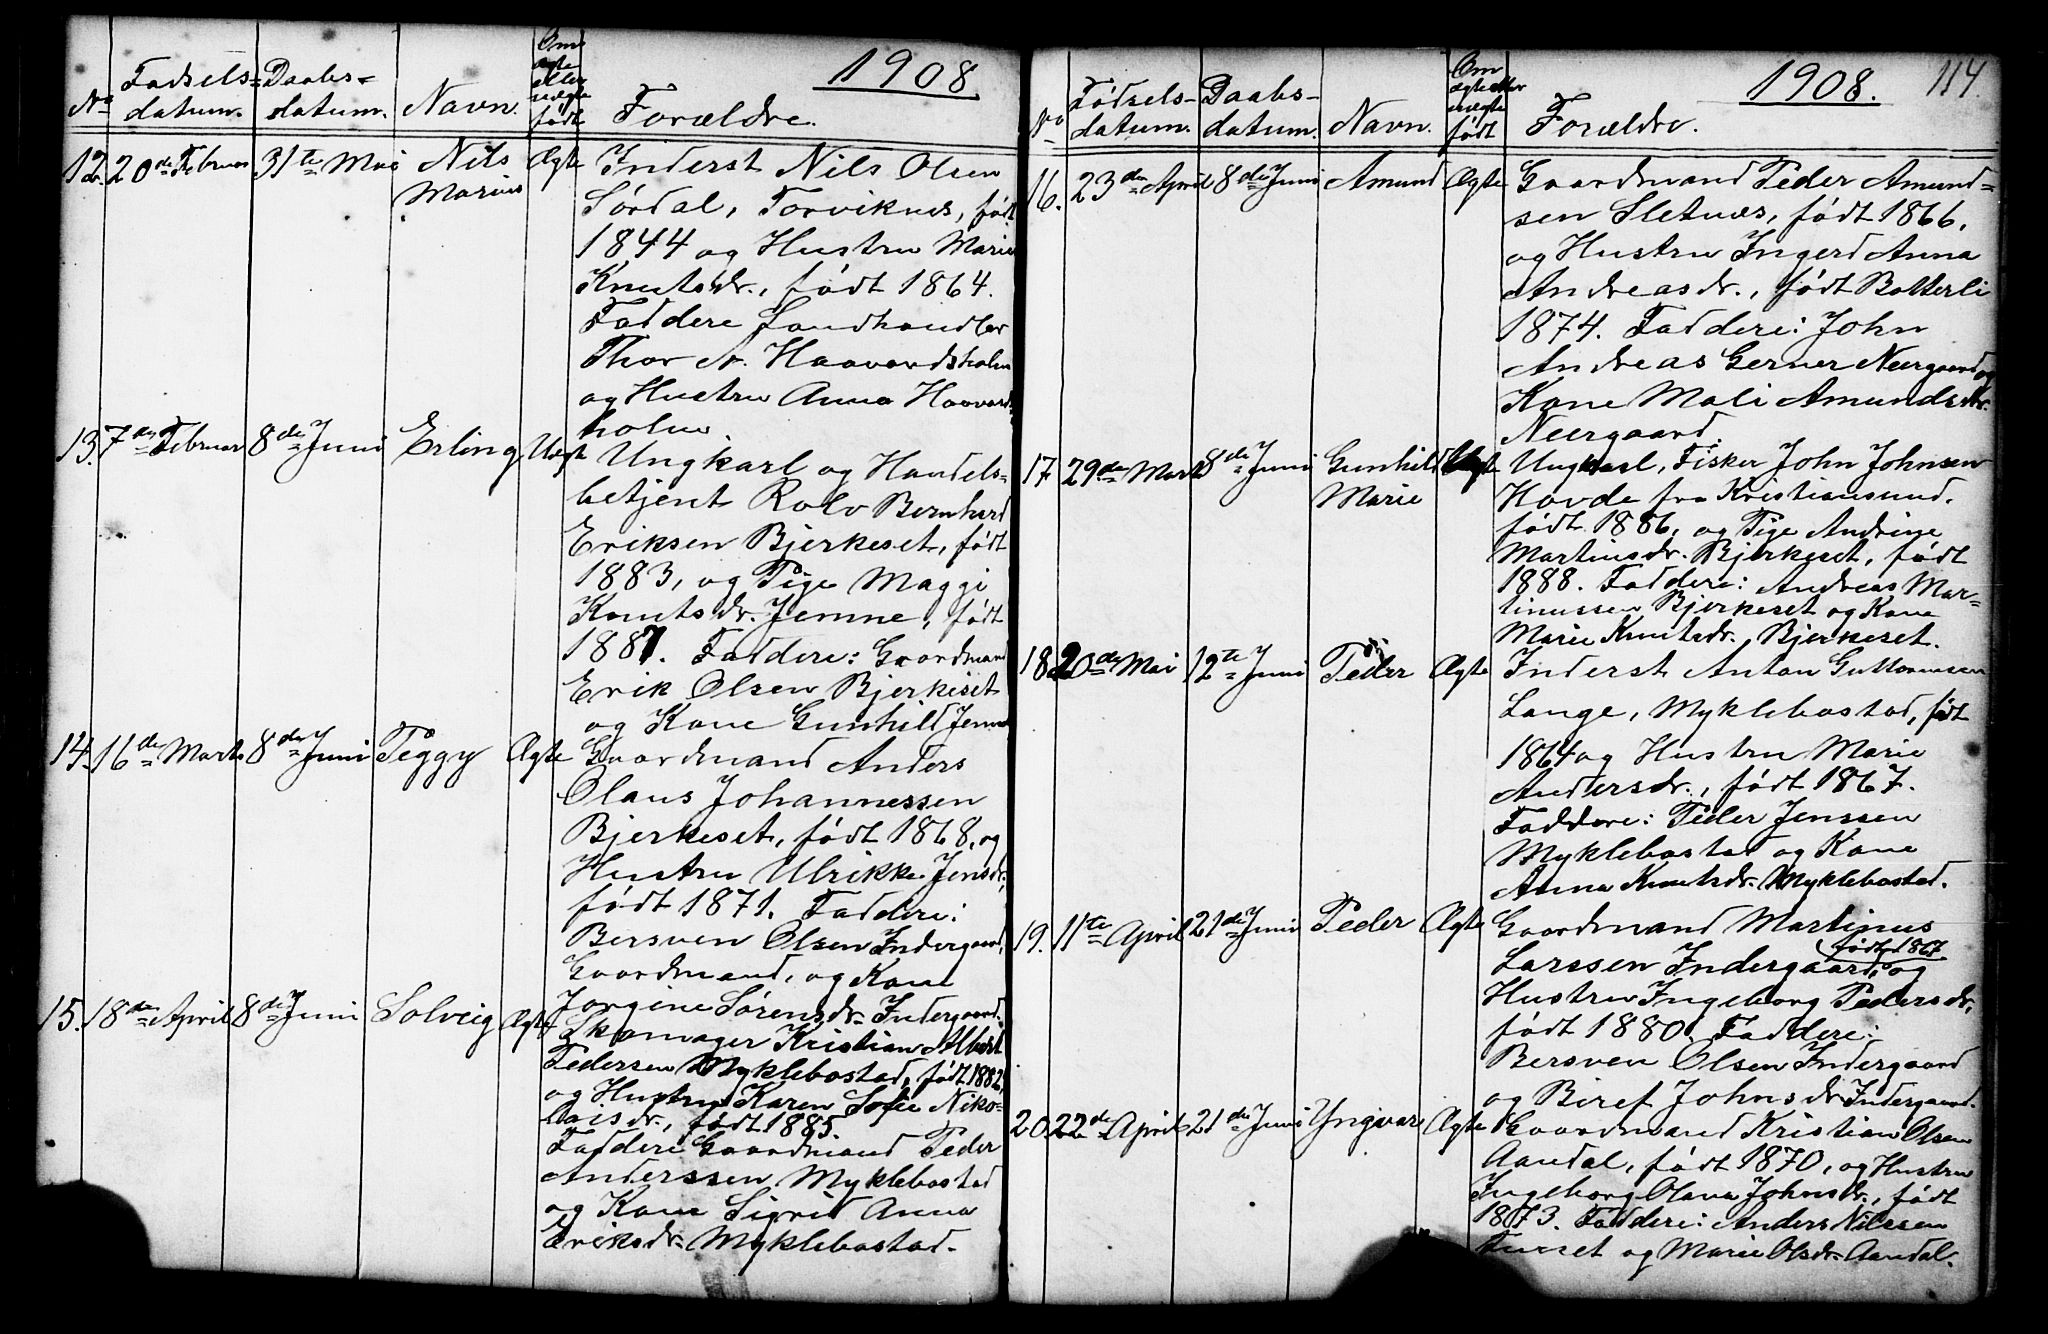 1908
No Fødsels= datum. Daabs= datum. Navn. Om ægte eller uægte født Forældre.
12. 20de Februar 31te Mai Nils Marius Ægte Inderst Nils Olsen
Sørdal, Torviknes, født
1844 og Hustru Marie
Knutsdr., født 1864.
Faddere Landhandler
Thor N. Haavardsholm
og Hustru Anna Haavards
holm
13. 7de Februar 8de Juni Erling Uægte Ungkarl og Handels=
betjent Rolv Bernhard
Eriksen Bjerkeset, født
1883, og Pige Maggi
Knutsdr. Jemne, født
1887. Faddere: Gaardmand
Erik Olsen Bjerkeset
og Kone Gunhild Jemne
14. 16de Marts 8de Juni Peggy Ægte Gaardmand Anders
Olaus Johannessen
Bjerkeset, født 1868, og
Hustru Ulrikke Jensdr.,
født 1871. Faddere:
Bersven Olsen Indergaard,
Gaardmand, og Kone
Jørgine Sørensdr. Indergaard.
15. 18de April 8de Juni Solveig Ægte Skomager Kristian Albert
Pedersen Myklebostad, født 1882,
og Hustru Karen Sofie Niko=
laisdr., født 1885.
Faddere Gaardmand Peder
Anderssen Myklebostad
og Kone Sigrid Anna
Eriksdr. Myklebostad.
1908. 114.
No Fødsels- datum. Daabs- datum. Navn. Om ægte eller uægte født Forældre.
16. 23de April 8de Juni Amund Ægte Gaardmand Peder Amund=
sen Sletnes, født 1866,
og Hustru Ingerd Anna
Andreasdr., født Botterli
1874. Faddere: John
Andreas Gerner Neergaard og
Kone Mali Amundsdr.
Neergaard.
17 29de Marts 8de Juni Gunhild Marie Uægte Ungkarl, Fisker John Johnsen
Hovde fra Kristiansund,
født 1886, og Pige Andrine
Martinsdr. Bjerkeset, født
1888. Faddere: Andreas Mar=
tinussen Bjerkeset og Kone
Marie Knutsdr. Bjerkeset.
18. 20de Mai 12te Juni Peder Ægte Inderst Anton Guttormsen
Lange, Myklebostad, født
1864 og Hustru Marie
Andersdr., født 1867.
Faddere: Peder Jenssen
Myklebostad og Kone
Anna Knutsdr. Myklebostad.
19. 11te April 21de Juni Peder Ægte Gaardmand Martinus
Larssen Indergaard, født 1867 og
Hustru Ingeborg Pedersdr.,
født 1880. Faddere:
Bersven Olsen Indergaard
og Beret Johnsdr. Indergaard.
20. 22de April 21de Juni Yngvar Ægte Gaardmand Kristian Olsen
Aandal, født 1870, og Hustru
Ingeborg Olava Johnsdr., født
1873. Faddere: Anders Nilssen
Furset og Marie Olsdr. Aandal.